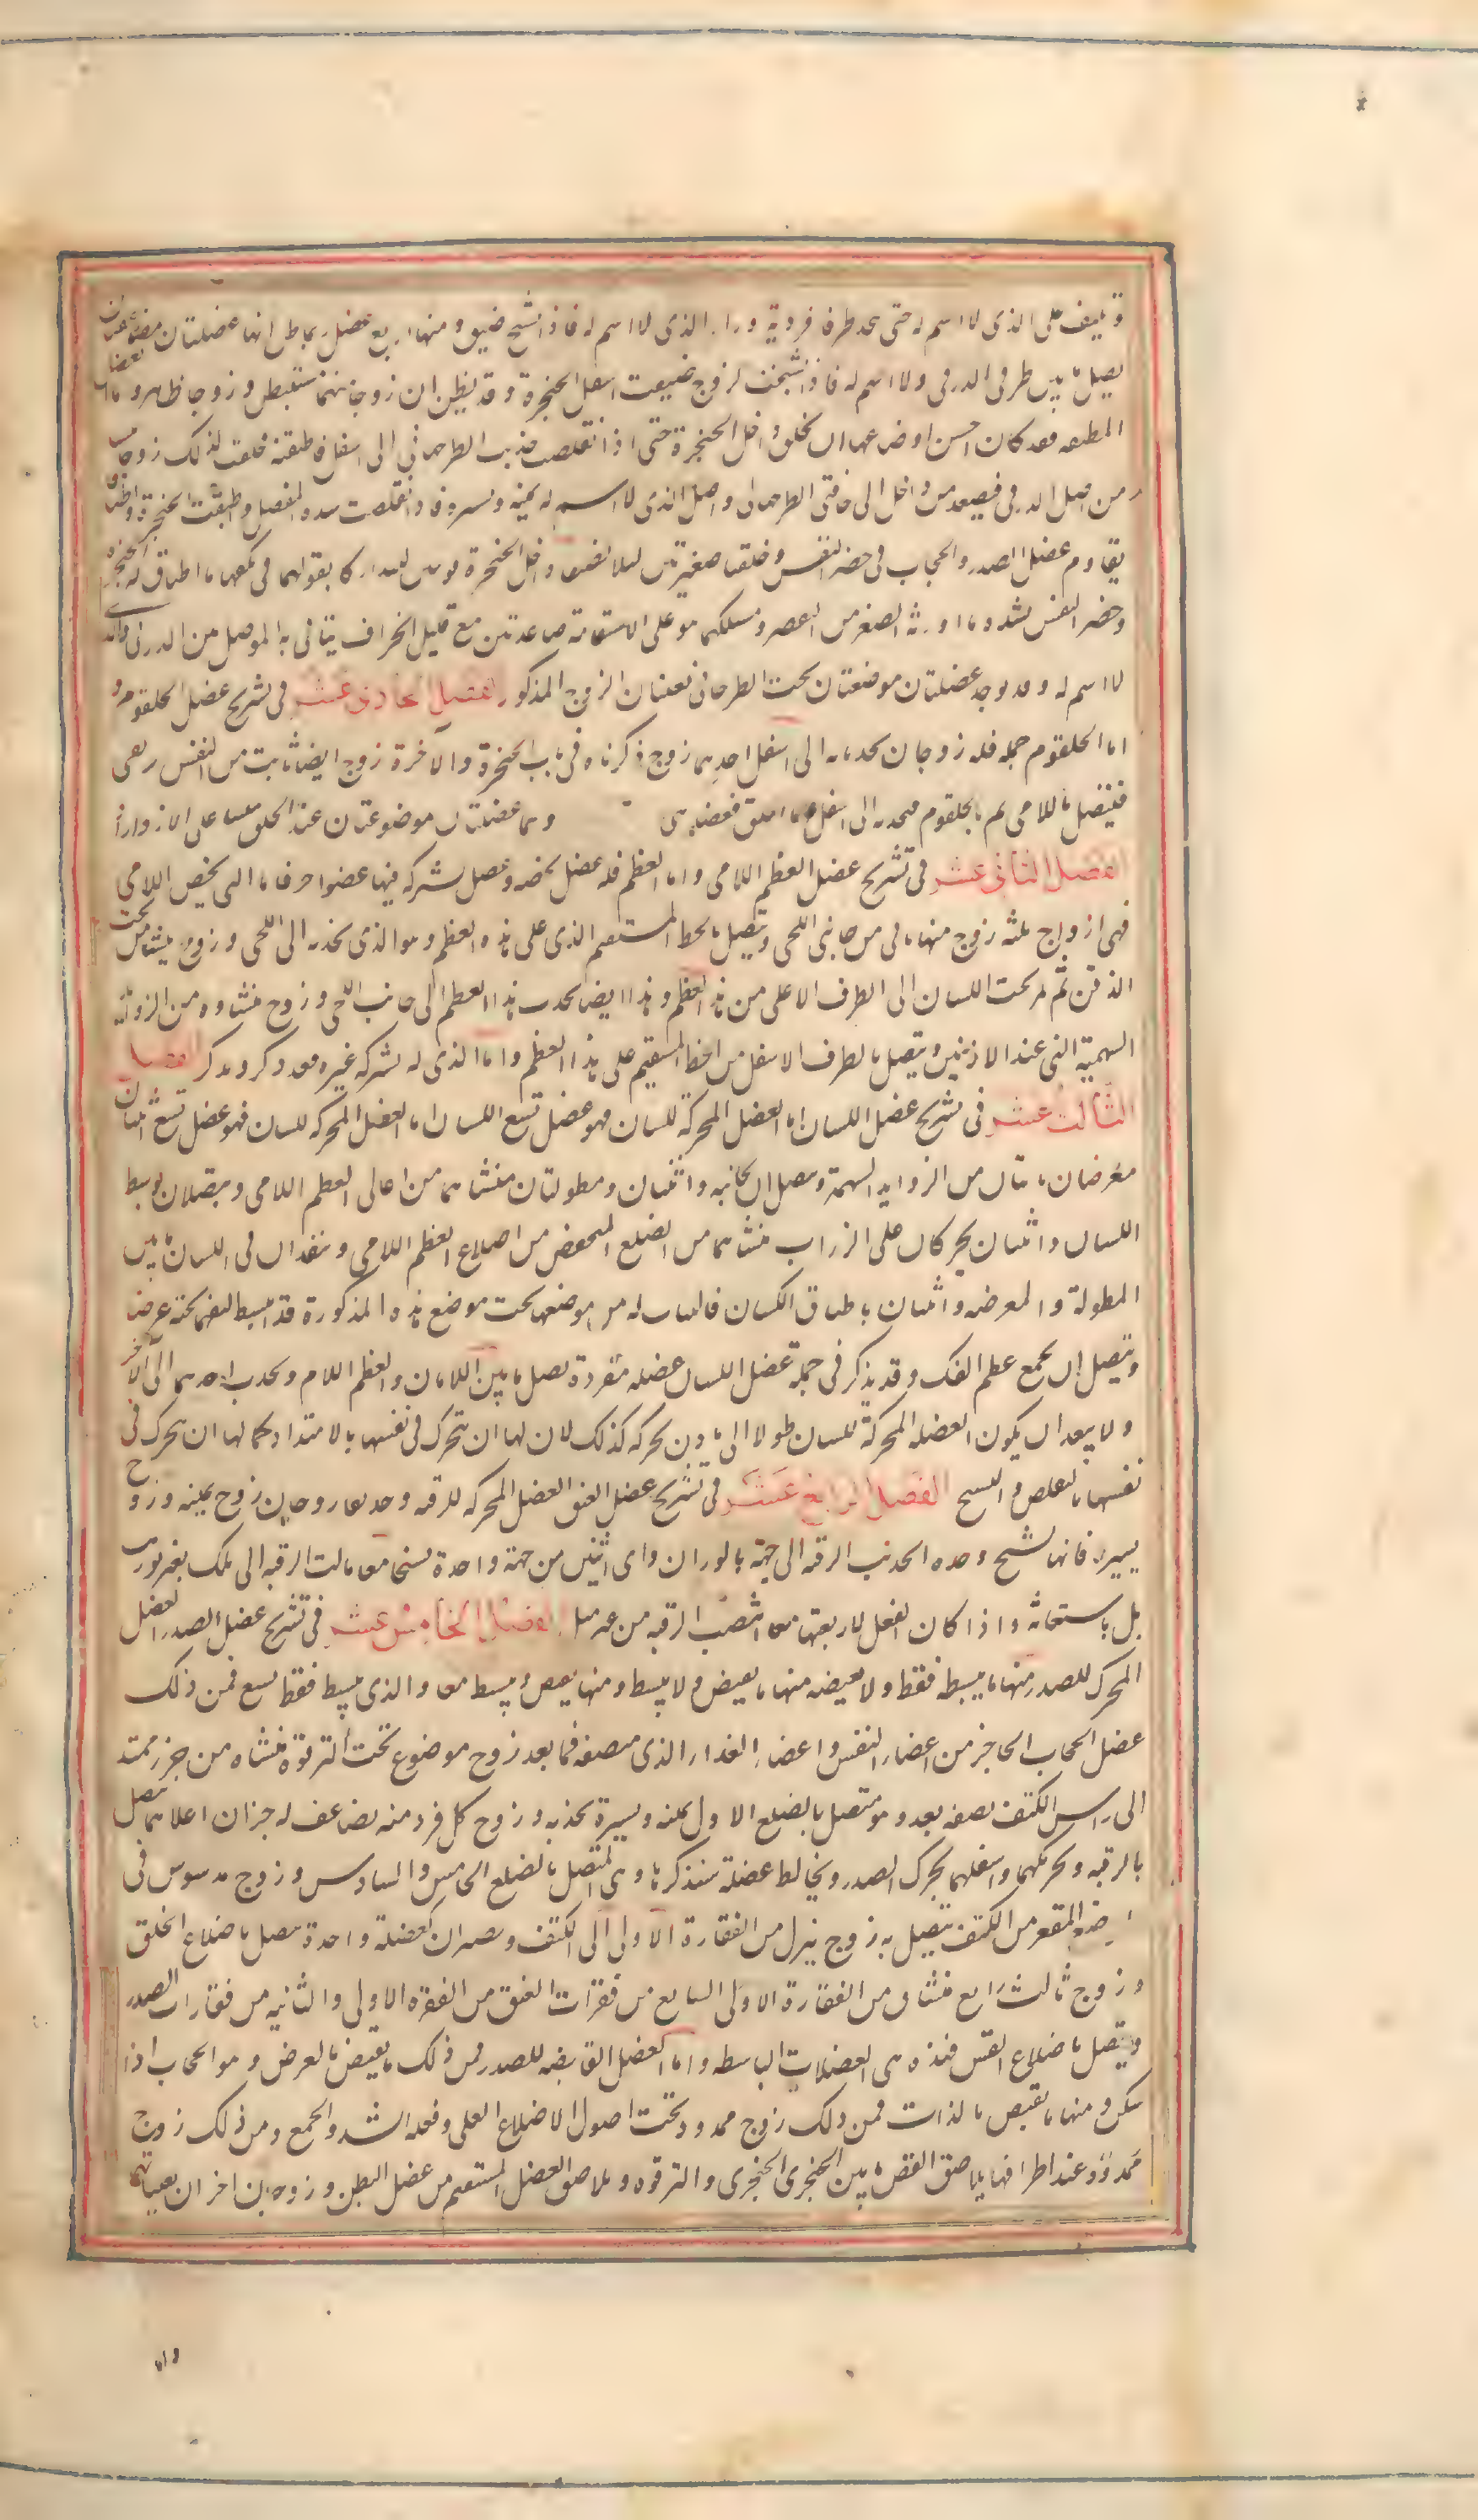 و تلتف على الذى لا اسم له حتى يتحد طرفا فرديه وراء الذى لا اسم له فاذا تشنج ضيق ومنها اربع عضل ربما ظن انها عضلتان مضاعفتان
يصل ما بين طرفى الدرقى ولا اسم له فاذا تشنجت لزوج ضيقت اسفل الحنجرة وقد يظن ان زوجا منهما مستبطن و زوجا ظاهر واما العضل
المطبقه فقد كان احسن اوضاعها ان تخلق داخل الحنجرة حتى اذا تقلصت جذبت الطرجهانى الى اسفل فاطبقته فخلقت لذلك زوجا
من اصل الدرقى فيصعد من داخل الى حافتى الطرجهانى واصل الذى لا اسم له يمينه ويسره فاذا تقلصت شدد المفصل واطبقت الحنجرة
يقاوم عضل الصدر والحجاب فى حصر النفس وخلقتا صغيرتين لئلا تضيقا داخل الحنجرة قويتين ليتداركا بقوتهما فى تكلفهما اطباق الحنجرة
وحصر النفس بشده ما اورثه الصغر من القصر ومسلكهما هو على الاستقامه صاعدتين مع قليل انحراف يتاتى به الموصل من الدرقى والذى
لا اسم له وقد يوجد عضلتان موضعتان تحت الطرجهانى تعينان الزوج المذكور الفصل الحادى عشر فى تشريح عضل الحلقوم و
اما الحلقوم جملة فله زوجان يجذبانه الى اسفل احدهما زوج ذكرناه فى باب الحنجرة والاخرة زوج ايضا نابت من القس يرتقى
فيتصل باللامى ثم بالحلقوم فيجذبه الى اسفل واما الحلق فعضلته وهما عضلتان موضوعتان عند الحلق يعينان على الازدراد
الفصل الثانى عشر فى تشريح عضل العظم اللامى واما العظم فله عضل يخصه وعضل يشركه فيها عضوا اخر فاما التى تخص اللامى
فهى ازواج ثلثه زوج منها ياتى من جانبى اللحى ويتصل بالخط المستقيم الذى على هذه العظم وهو الذى يجذبه الى اللحى وزوج منشأ من تحت
الذقن ثم يمر تحت اللسان الى الطرف الاعلى من هذا العظم وهذا ايضا يجذب هذا العظم الى جانب اللحى وزوج منشاوه من الزوائد
السهميه التى عند الاذنين ويتصل بالطرف الاسفل من الخط المستقيم على هذا العظم واما الذى له يشركه غيره فقد ذكر ويذكر الفصل
الثالث عشر فى تشريح عضل اللسان اما العضل المحركة للسان فهو عضل تسع اللسان اما العضل المحركه للسان فهو عضل تسع اثنتان
معرضان ياتيان من الزوايد السهمية ويتصلان بجانبه واثنتان ومطولتان منشاهما من اعالى العظم اللامى ويتصلان بوسط
اللسان واثنتان يحركان على الوراب منشاهما من الضلع المنخفض من اضلاع العظم اللامى وينفذان فى اللسان ما بين
المطولة والمعرضه واثنتان باطحتان اللسان قالبتان له من موضعهما تحت موضع هذه المذكورة قد انبسط ليفهما تحته عرضا
ويتصل ان بجميع عظم الفك وقد يذكر فى جملة عضل اللسان عضله مفردة تصل ما بين اللسان والعظم اللام وتجذب احدهما الى الآخر
ولا يبعد ان يكون العضله المحركة للسان طولا الى بارز ان تحركه كذلك لان لها ان تتحرك فى نفسها بالامتداد كما لها ان تتحرك فى
نفسها بالتقلص والتشنج الفصل الرابع عشر فى تشريح عضل العنق العضل المحركه للرقبه وحدها زوجان زوج يمينه وزوج
يسيره فانها تشنج وحده انجذبت الرقبه الى جهته بالوراب واى اثنتين من جهة واحدة تشنجا معا مالت الرقبه الى تلك بغير توريب
بل باستقامة واذا كان الفعل لاربعتها معا انتصب الرقبه من غير ميل الفصل الخامس عشر فى تشريح عضل الصدر العضل
المحرك للصدر منها ما يبسطه فقط ولا يقبضه منها ما يقبض ولا يبسط ومنها يقبض ويبسط معا والذى يبسط فقط تسع فمن ذلك
عضل الحجاب الحاجز من اعضاء النفس واعضاء الغداء الذى سنصفه فيما بعد زوج موضوع تحت الترقوة منشاه من جزء ممتد
الى راس الكتف نصفه بعد وهو متصل بالضلع الاول يمنه ويسرة يجذبه وزوج كل فرد منه يضاعف له جزان اعلاهما يتصل
بالرقبه ويحركهما واسفلهما يحرك الصدر ويخالط عضلة سنذكرها وهى المتصل بالضلع الخامس والسادس وزوج مدسوس فى
الموضع المقعر من الكتف يتصل به زوج ينزل من الفقارة الاولى الى الكتف وصيران كعضلة واحدة يتصل باضلاع الخلف
وزوج ثالث رابع منشاه من الفقارة الاولى السابع من فقرات العنق من الفقره الاولى والثانيه من فقارات الصدر
ويتصل باضلاع القس فهذه هى العضلات الباسطه واما العضل القابضه للصدر فمن ذلك ما يقبض بالعرض وهو الحجاب اذا
سكن ومنها ما يقبض بالذات فمن ذلك زوج ممدود تحت اصول الاضلاع العلى وفعله الشد والجمع ومن ذلك زوج
ممدود عند اطرافها يلاصق القص ما بين الحنجرى الحنجرى والترقوه ويلاصق العضل المستقيم من عضل البطن وزوجان اخران يعينانهما
واما